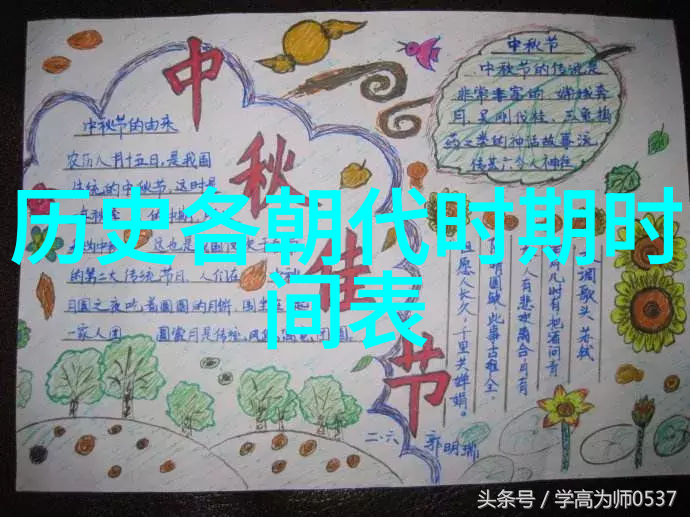 中秋佳节
中秋节的由来
农历八月十五日,是我国
传统的中秋节,这时是
的第二大传统节日,人们在
月圆之夜吃着圆圆的月饼,
一家人团
中秋节
中秋节的传说是
非常丰富的,嫦娥奔
月,吴刚伐桂,玉兔捣
药之类的神话故事流
传甚广
历史各朝代时期时
间表
调歌头 苏轼
明月几时有把酒问青
人有悲欢离合月有
阴晴圆缺,此事古难全。
但愿人长久,千里共婵娟。
二·六 郭明瑞
头条号 / 学高为师0537